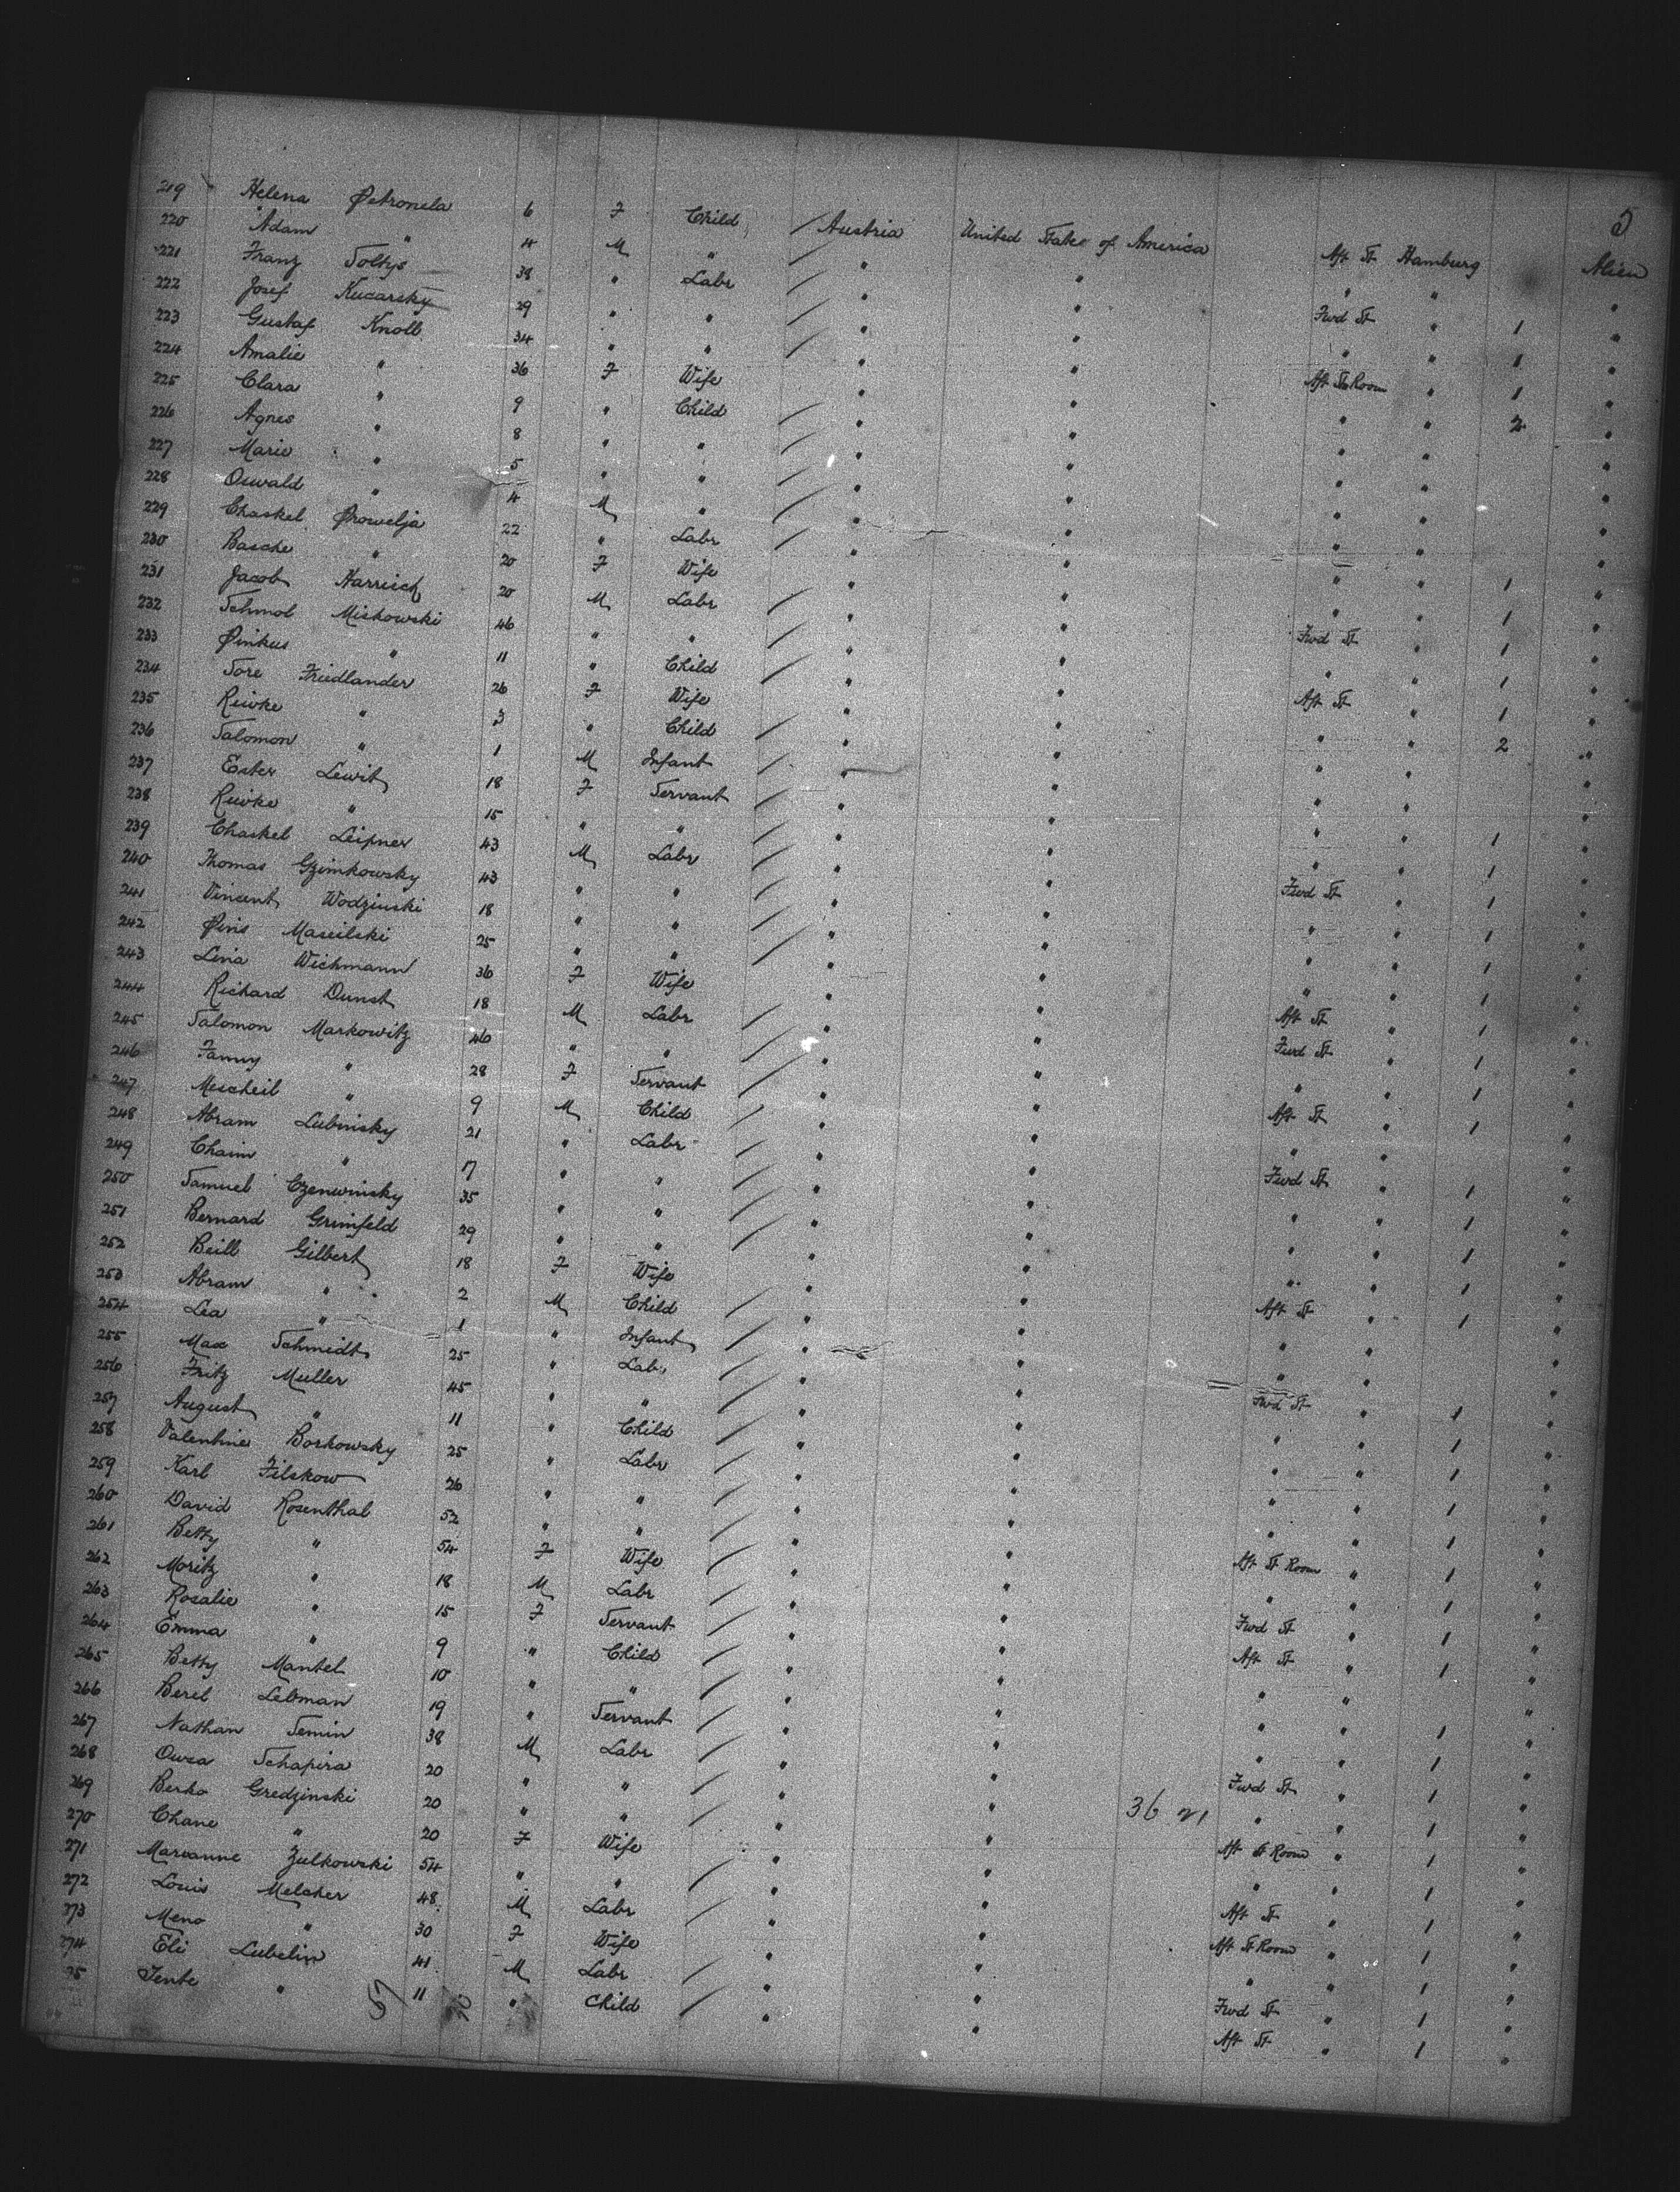 5
219 Helena Petronela 6 F Child Austria United States of America Aft St Hamburg Alien
220 Adam " 4 M " " " " " "
221 Franz Soltys 38 " Labr " " Fwd St " 1 "
222 Josef Kucarsky 29 " " " " " " 1 "
223 Gustaf Knoll 34 " " " " Aft St Room " 1 "
224 Amalie " 36 F Wife " " " " 2 "
225 Clara " 9 " Child " " " " "
226 Agnes " 8 " " " " " " "
227 Marie " 5 " " " " " " "
228 Oswald " 4 M " " " " " "
229 Chaskel Prowelja 22 " Labr " " " " 1 "
230 Basche " 20 F Wife " " " " 1 "
231 Jacob Harrisch 20 M Labr " " Fwd St " 1 "
232 Schmol Miskowski 46 " " " " " " 1 "
233 Pinkus " 11 " Child " " Aft St " 1 "
234 Sore Friedlander 26 F Wife " " " " 2 "
235 Riwke " 3 " Child " " " " "
236 Salomon " 1 M Infant " " " " "
237 Ester Lewit 18 F Servant " " " " 1 "
238 Riwke " 15 " " " " " " 1 "
239 Chaskel Leipner 43 M Labr " " Fwd St " 1 "
240 Thomas Gzimkowsky 43 " " " " " " 1 "
241 Vincent Wodzinski 18 " " " " " " 1 "
242 Pins Maseilski 25 " " " " " " 1 "
243 Lina Wichmann 36 F Wife " " Aft St " 1 "
244 Richard Dunst 18 M Labr " " Fwd St " 1 "
245 Salomon Markowitz 46 " " " " " " 1 "
246 Fanny " 28 F Servant " " Aft St " 1 "
247 Mescheil " 9 M Child " " " " "
248 Abram Lubinsky 21 " Labr " " Fwd St " 1 "
249 Chaim " 17 " " " " " " 1 "
250 Samuel Czenwinsky 35 " " " " " " 1 "
251 Bernard Grimfeld 29 " " " " " " 1 "
252 Beill Gilbert 18 F Wife " " Aft St " 1 "
253 Abram " 2 M Child " " " "
254 Lea " 1 " Infant " " " "
255 Max Schmidt 25 " Lab. " " Fwd St " 1 "
256 Fritz Muller 45 " " " " " " 1 "
257 August " 11 " Child " " " " 1 "
258 Valentine Borkowsky 25 " Labr " " " " 1 "
259 Karl Filskow 26 " " " " " " 1 "
260 David Rosenthal 52 " " " " Aft St Room " 1 "
261 Betty " 54 F Wife " " " " 1 "
262 Moritz " 18 M Labr " " Fwd St " 1 "
263 Rosalie " 15 F Servant " " Aft St " 1 "
264 Emma " 9 " Child " " " " "
265 Betty Mantel 10 " " " " " " 1 "
266 Berel Lebman 19 " Servant " " " " 1 "
267 Nathan Semin 38 M Labr " " Fwd St " 1 "
268 Owsa Schapira 20 " " " " " " 1 "
269 Berko Gredzinski 20 " " " " 36 21 Aft St Room " 1 "
270 Chane " 20 F Wife " " " " 1 "
271 Marianne Zulkowski 54 " " " " Aft St " 1 "
272 Louis Melcher 48 M Labr " " Aft St Room " 1 "
273 Meno " 30 F Wife " " " " 1 "
274 Eli Lubelin 41 M Labr " " Fwd St " 1 "
75 Jente " 11 " Child " " Aft St " 1 "
57